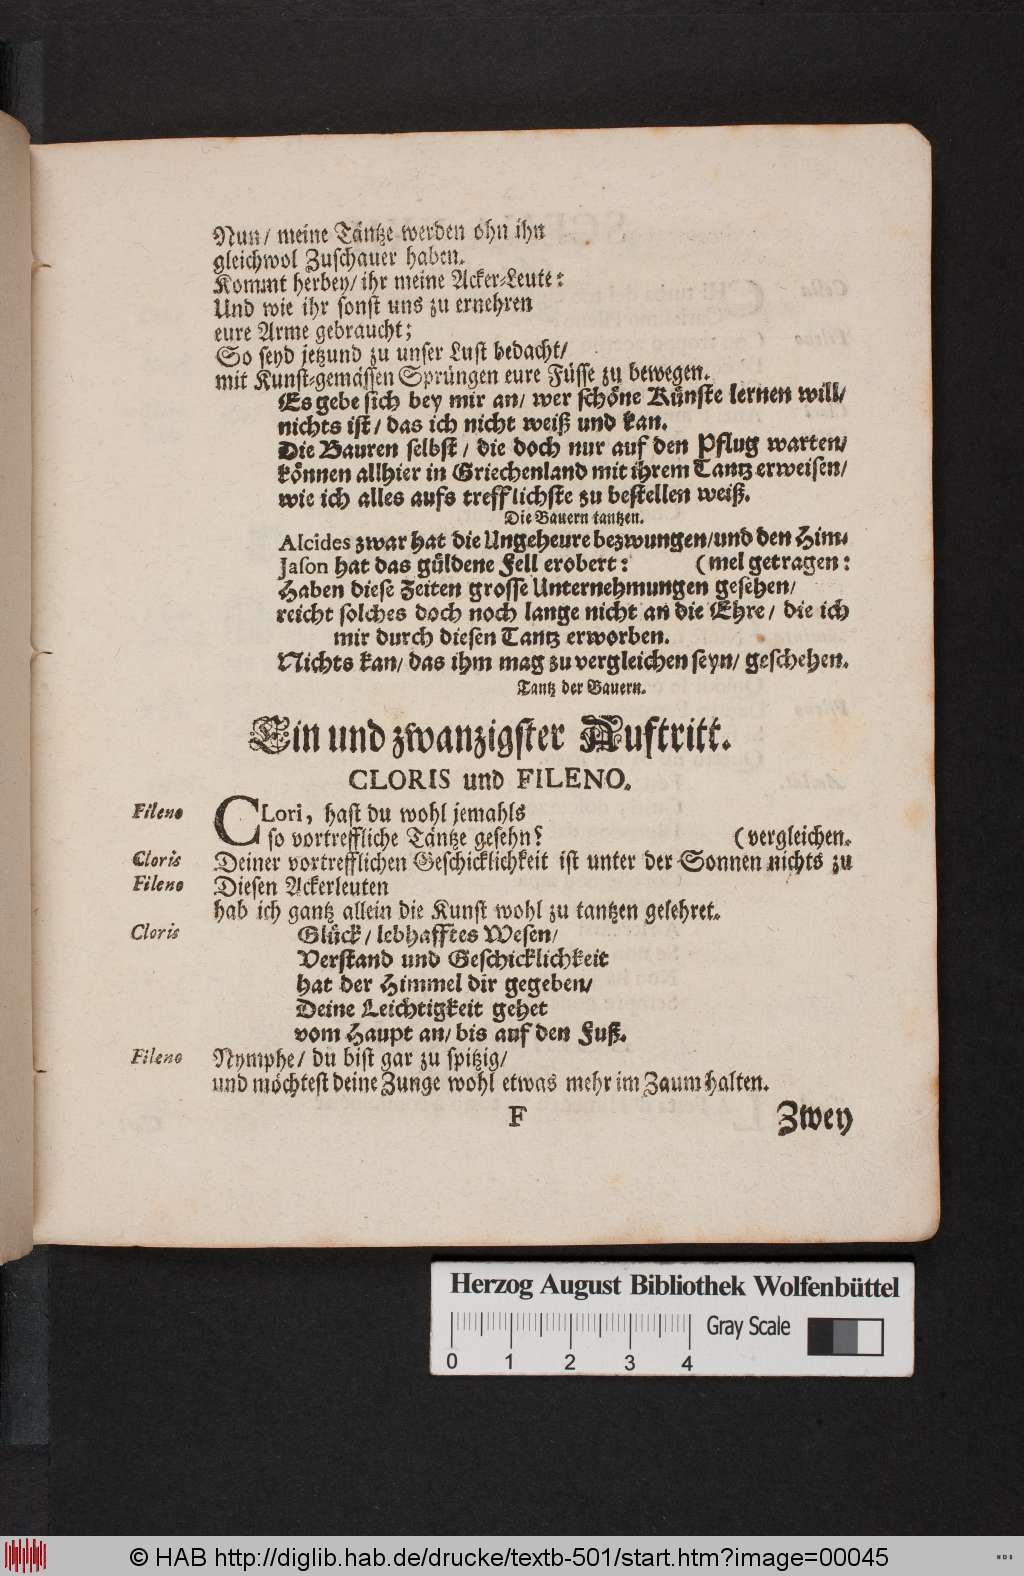 Nun/ meine Täntze werden ohn ihn
gleichwol Zuschauer haben.
Kommt herbey/ ihr meine Acker-Leute:
Und wie ihr sonst uns zu ernehren
eure Arme gebraucht;
So seyd jetzund zu unser Lust bedacht/
mit Kunst-gemässen Sprüngen eure Füsse zu bewegen.
Es gebe sich bey mir an/ wer schöne Künste lernen will/
nichts ist/ das ich nicht weiß und kan.
Die Bauren selbst/ die doch nur auf den Pflug warten/
können allhier in Griechenland mit ihrem Tantz erweisen/
wie ich alles aufs trefflichste zu bestellen weiß.
Die Bauern tantzen.
Alcides zwar hat die Ungeheure bezwungen/und den Him-
Jason hat das güldene Fell erobert: (mel getragen:
Haben diese Zeiten grosse Unternehmungen gesehen/
reicht solches doch noch lange nicht an die Ehre/ die ich
mir durch diesen Tantz erworben.
Nichts kan/ das ihm mag zu vergleichen seyn/ geschehen.
Tantz der Bauern.
Ein und zwanzigster Auftritt.
CLORIS und FILENO.
Fileno CLori, hast du wohl jemahls
so vortreffliche Täntze gesehn? (vergleichen.
Cloris Deiner vortrefflichen Geschicklichkeit ist unter der Sonnen nichts zu
Fileno Diesen Ackerleuten
hab ich gantz allein die Kunst wohl zu tantzen gelehret.
Cloris Glück/ lebhafftes Wesen/
Verstand und Geschicklichkeit
hat der Himmel dir gegeben/
Deine Leichtigkeit gehet
vom Haupt an/ bis auf den Fuß.
Fileno Nymphe/ du bist gar zu spitzig/
und möchtest deine Zunge wohl etwas mehr im Zaum halten.
F Zwey
Herzog August Bibliothek Wolfenbüttel
0 1 2 3 4 Gray Scale
© HAB http://diglib.hab.de/drucke/textb-501/start.htm?image=00045